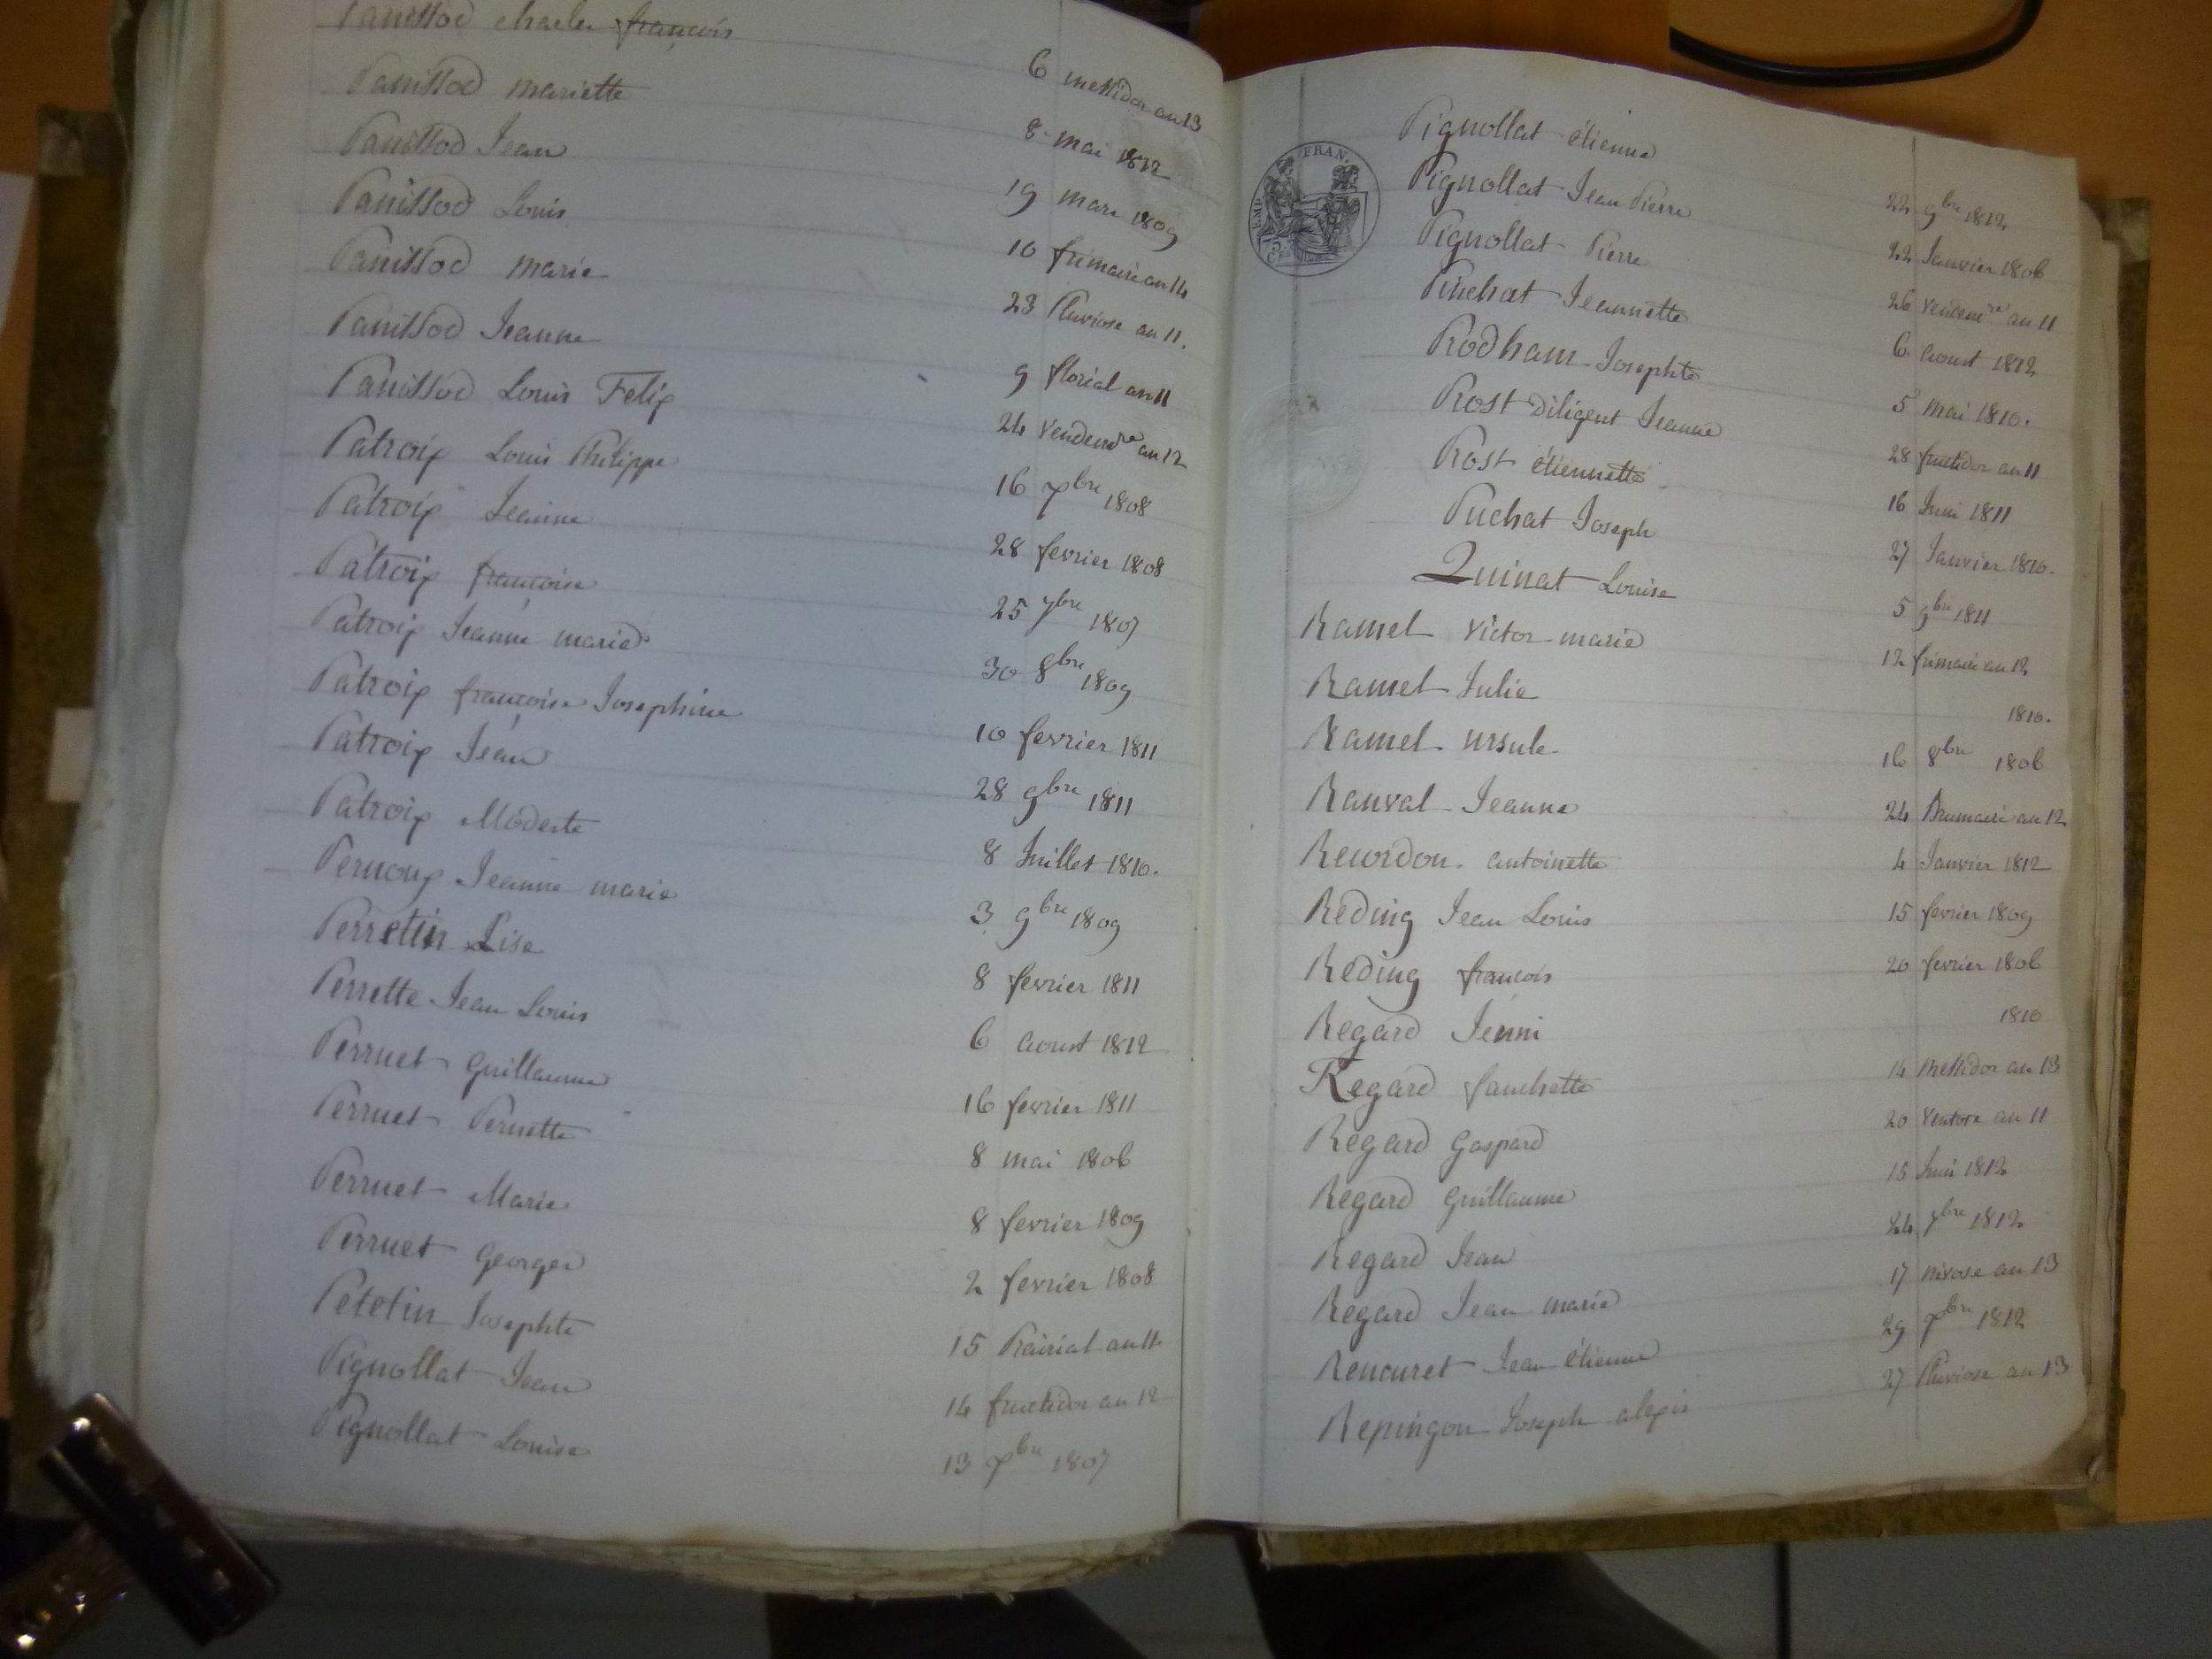 Panissod charles françois 6 messidor an 13
Panissod mariette 8 mai 1812
Panissod Jean 19 mars 1809
Panissod Louis 10 frimaire an 14
Panissod marie 23 Pluviose an 11.
Panissod Jeanne 9 florial an 11
Panissod Louis Felix 24 vendemre an 12
Patroix Louis Philippe 16 Xbre 1808
Patroix Jeanne 28 fevrier 1808
Patroix françoise 25 7bre 1807
Patroix Jeanne marie 30 8bre 1809
Patroix françoise Josephine 10 fevrier 1811
Patroix Jean 28 9bre 1811
Patroix Modeste 8 Juillet 1810.
Pernoux Jeanne marie 3 9bre 1809
Perretin Lise 8 fevrier 1811
Perrette Jean Louis 6 aoust 1812
Perruet Guillaume 16 fevrier 1811
Perruet Pernette 8 mai 1806
Perruet Marie 8 fevrier 1809
Perruet Georges 2 fevrier 1808
Petetin Josephte 15 Prairial an 11
Pignollat Jean 14 fructidor an 12
Pignollat Louise 13 Xbre 1807
EMP. FRAN.
Pignollat étienne 22 9bre 1812
Pignollat Jean Pierre 22 Janvier 1806
Pignollat Pierre 26 vendemre an 11
Pinchat Jeannette 6 aoust 1812
Prodham Josephte 5 mai 1810.
Prost Diligent Jeanne 28 fructidor an 11
Prost étiennette 16 Juin 1811
Puchat Joseph 27 Janvier 1810.
Quinat Louise 5 9bre 1811
Ramel victor marie 12 frimaire an 12
Ramel Julie 1810.
Ramel ursule 16 8bre 1806
Ranval Jeanne 24 Brumaire an 12
antoinette 4 Janvier 1812
Reding Jean Louis 15 fevrier 1809
Reding françois 20 fevrier 1806
Regard Jenni 1810
Regard fanchette 14 messidor an 13
Regard Gaspard 20 ventose an 11
Regard Guillaume 15 Juin 1812
Regard Jean 24 7bre 1812
Regard Jean marie 17 nivose an 13
Rencuret Jean étienne 29 Xbre 1812
Repingon Joseph alexis 27 Pluviose an 13